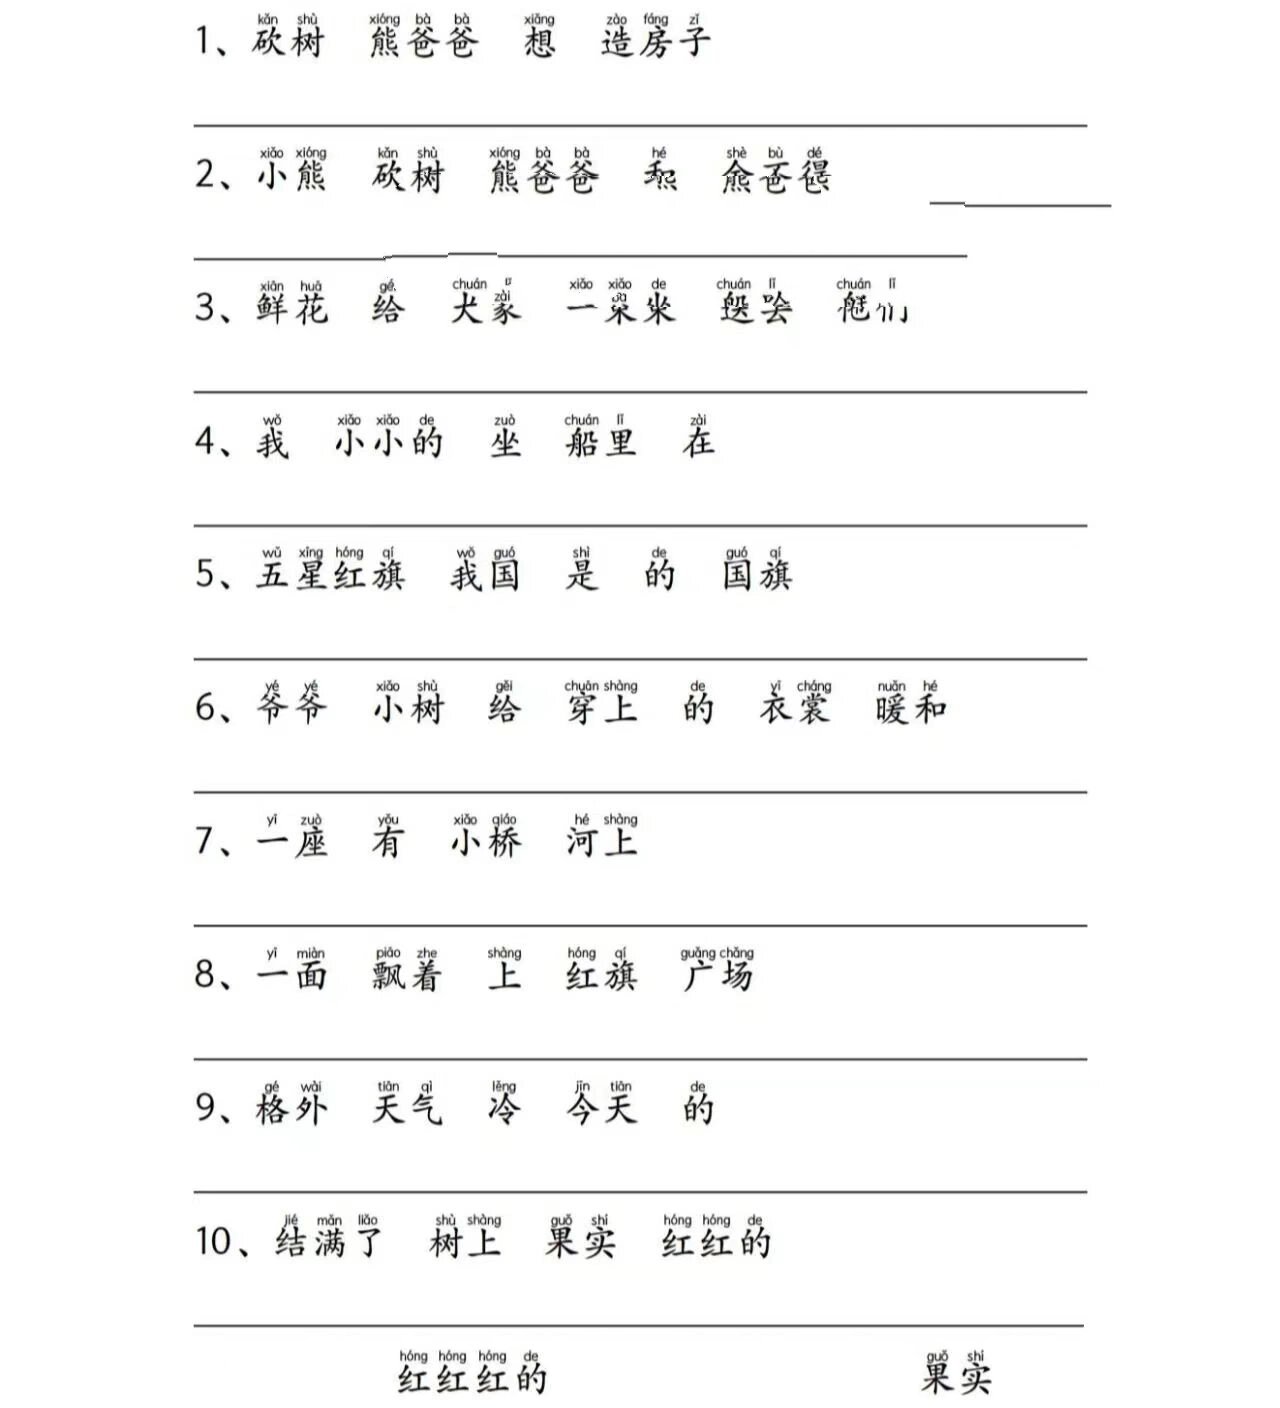 kǎn shù xióng bà bà xiǎng zào fáng zǐ
1、砍树 熊爸爸 想 造房子
xiǎo xióng kǎn shù xióng bà bà hé shè bù dé
2、小熊 砍树 熊爸爸
xiān huā gé chuán xiǎo xiǎo de chuán lǐ chuán lǐ
zài
3、鲜花 给 一
wǒ xiǎo xiǎo de zuò chuán lǐ zài
4、我 小小的 坐 船里 在
wǔ xīng hóng qí wǒ guó shì de guó qí
5、五星红旗 我国 是 的 国旗
yé yé xiǎo shù gěi chuān shàng de yī cháng nuǎn hé
6、爷爷 小树 给 穿上 的 衣裳 暖和
yī zuò yǒu xiǎo qiáo hé shàng
7、一座 有 小桥 河上
yī miàn piāo zhe shàng hóng qí guǎng chǎng
8、一面 飘着 上 红旗 广场
gé wài tiān qì lěng jīn tiān de
9、格外 天气 冷 今天 的
jié mǎn liǎo shù shàng guǒ shí hóng hóng de
10、结满了 树上 果实 红红的
hóng hóng hóng de guǒ shí
红红红的 果实